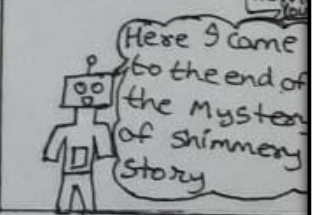 Here I came
to the end of
the Mystery
of shimmery
story